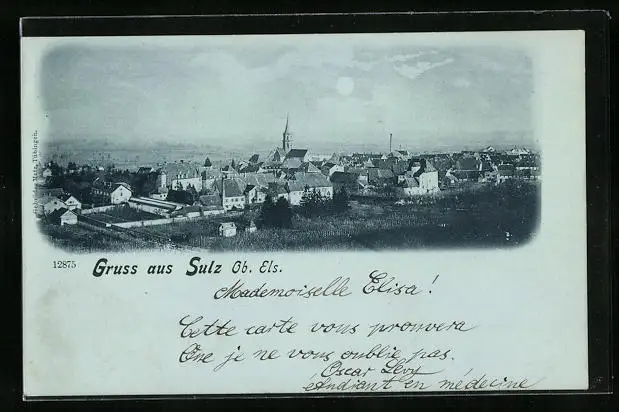 Gebrüder Metz, Tübingen.
12875 Gruss aus Sulz Ob. Els.
Mademoiselle Elisa!
Cette carte vous prouvera
Que je ne vous oublie pas.
Oscar Lévy
étudiant en médecine